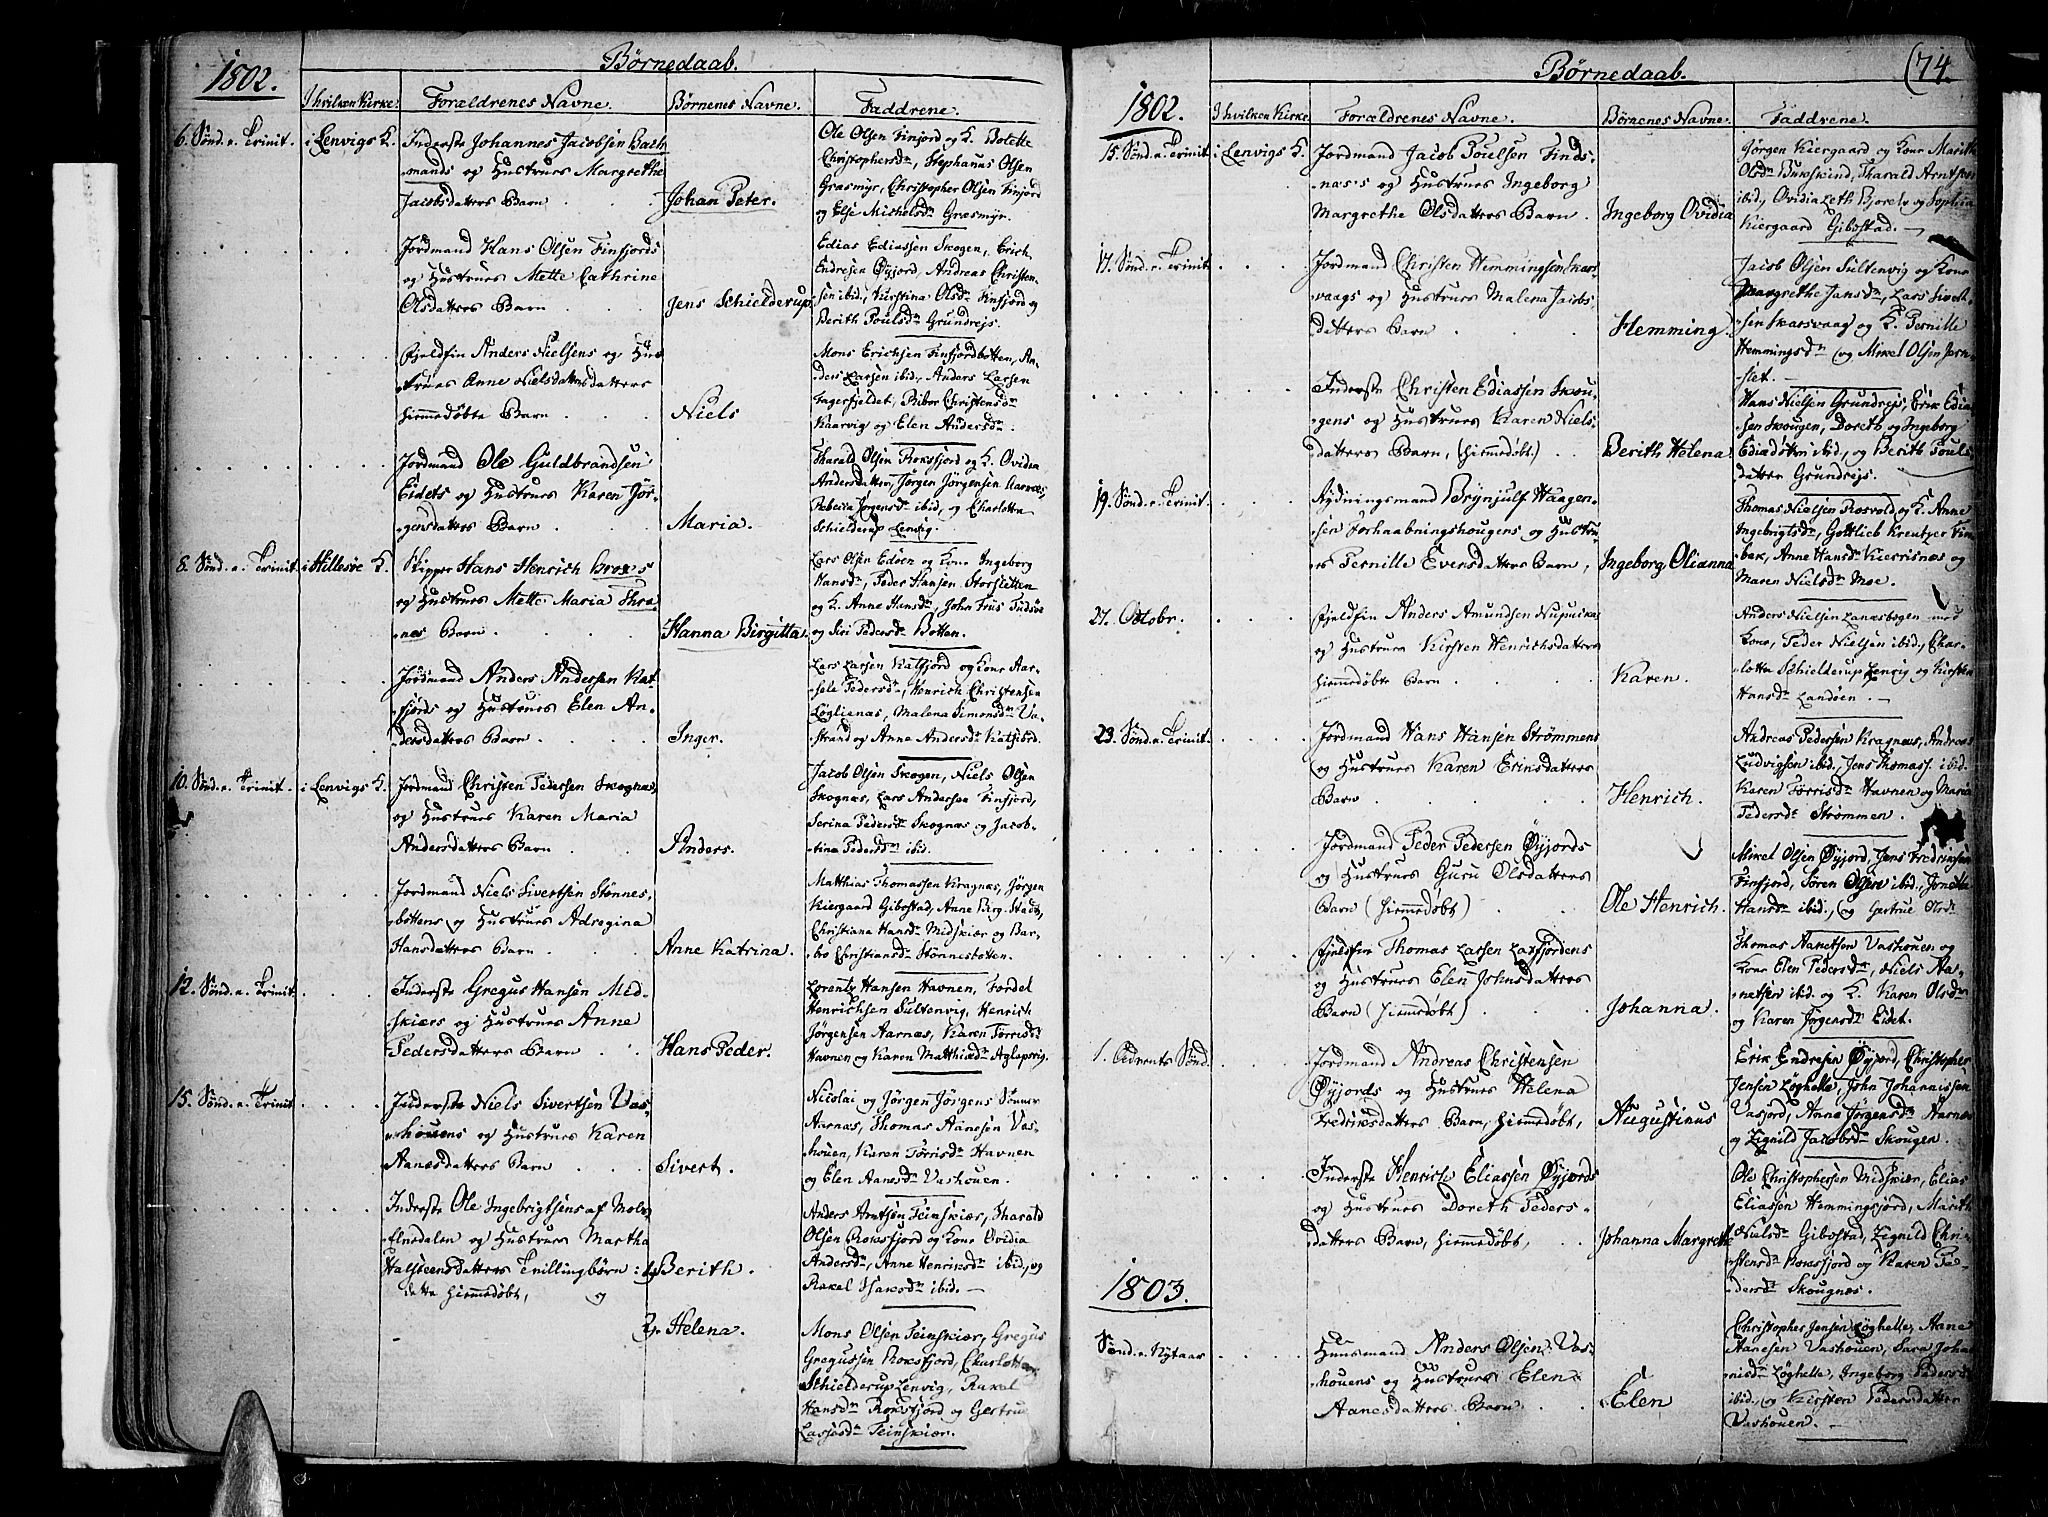 1802.
Børnedaab.
I hvilken Kirke: Forældrenes Navne. Børnenes Navne. Faddrene.
6. Sønd. e. Trinit. i Lenvigs K. Inderste Johannes Jacobsen Bach
mands og Hustrues Margrethe
Jacobsdatters Barn
Johan Peter.
Ole Olsen Finfjord og K. Bolette
Christophersdr, Stephanus Olsen
Græsmyr, Christopher Olsen Finfjord
og Else Michelsdr Græsmyr.
Jordmand Hans Olsen Finfjords
og Hustrues Mette Cathrine
Olsdatters Barn
Jens Schielderup
Edias Ediassen Skogen, Erich
Endresen Øyjord, Andreas Christen-
sen ibid., Kirstina Olsdr Finfjord og
Berith Poulsdr Grundrejs.
Fjeldfin Anders Nielsens og Hus
trues Anne Nielsdatters
hiemmedøbte Barn
Niels
Mons Erichsen Finfjordbotten, An-
ders Larsen ibid., Anders Larsen
Fagerfjeldet, Riber Christensdr
Kaarvig og Elen Andersdr.
Jordmand Ole Guldbrandsen
Eidets og Hustrues Karen Jør-
gensdatters Barn
Maria.
Tharald Olsen Roksfjord og K. Ovidia
Andersdatter, Jørgen Jørgensen Aarnæs,
Rebecka Jørgensdr ibid., og Charlotta
Schielderup Lenvig.
8. Sønd. e. Trinit. i Hillesøe K. Skipper Hans Henrich Brox's
og Hustrues Mette Maria Thra
nes Barn
Hanna Birgitta.
Lars Olsen Edøen og Kone Ingeborg
Hansdr, Peder Hansen Storsletten
og K. Anne Hansdr, John Friis Tudsøe
og Siri Pedersdr Botten.
Jordmand Anders Andersen Kat-
fjords og Hustrues Elen An-
dersdatters Barn
Inger.
Lars Larsen Katfjord og Kone Aar-
sele Pedersdr, Henrich Christensen
Løglienæs, Malena Simonsdr Va-
strand og Anne Andersdr Katfjord.
10. Sønd. e. Trinit. i Lenvigs K. Jordmand Christen Pedersen Skognæs,
og Hustrues Karen Maria
Andersdatters Barn
Anders.
Jacob Olsen Skogen, Niels Olsen
Skognæs, Lars Andersen Finfjord,
Serina Pedersdr Skognæs og Jacob-
tina Pedersdr ibid.
Jordmand Niels Sivertsen Stønnes-
bottens og Hustrues Adregina
Hansdatters Barn
Anne Katrina.
Matthias Thomassen Kragnæs, Jørgen
Kiergaard Gibostad, Anne Birg. Stadt,
Christiana Hansdr Midskiær og Bar-
bro Christiansdr Stønnesbotten.
12. Sønd. e. Trinit. Inderste Gregus Hansen Mid-
skiærs og Hustrues Anne
Pedersdatters Barn
Hans Peder.
Lorentz Hansen Havnen, Fordel
Henrichsen Sultenvig, Henrich
Jørgensen Aarnæs, Karen Torrisdr
Havnen og Karen Matthiædr Aglapsvig.
15. Sønd. e. Trinit. Inderste Niels Sivertsen Vas-
houens og Hustrues Karen
Aanæsdatters Barn
Sivert.
Nicolai og Jørgen Jørgens Sønner
Aarnæs, Thomas Aanesen Vas-
houen, Karen Torrisdr Havnen
og Elen Aanesdr Vashouen.
Inderste Ole Ingebrigtsens af Mols-
elvedalen og Hustrues Martha
Halsteensdatters Tvillingbørn:
dette hiemmedøbt, og
Berith.
Anders Arntsen Teinskiær, Tharald
Olsen Roksfjord og Kone Ovidia
Andersdr, Anne Henriksdr ibid., og
Rakel Isaksdr ibid.
2, Helena.
Mons Olsen Teinskiær, Gregus
Gregussen Roksfjord, Charlotta
Schielderup Lenvig, Rakel
Hansdr Roksfjord og Gertrue
Lassesdr Teinskiær.
(74.
1802.
Børnedaab.
I hvilken Kirke. Forældrenes Navne. Børnenes Navne. Faddrene.
15. Sønd. e. Trinit. i Lenvigs K. Jordmand Jacob Poulsen Finds-
næs's og Hustrues Ingeborg
Margrethe Olsdatters Barn.
Ingeborg Ovidia
Jørgen Kiergaard og Kone Marith
Olsdr Buxskind, Tharald Arntsen
ibid., Ovidia Leth Bjorelv og Sophia
Kiergaard Gibostad.
17. Sønd. e. Trinit. Jordmand Christen Hemmingsen Skars-
vaags og Hustrues Malena Jacobs
datters Barn
Hemming.
Jacob Olsen Sultenvig og Kone
Margrethe Jansdr, Lars Sivert-
sen Skarsvaag og K. Pernille
Hemmingsdr og Mikel Olsen Jern-
slet.
Inderste Christen Ediassen Skou-
gens og Hustrues Karen Niels-
datters Barn, (hiemmedøbt)
Berith Helena
Hans Nielsen Grundrejs, Erik Edia
sen Skougen, Doreth og Ingeborg
Ediædøttre ibid., og Berith Pouls
datter Grundrejs.
19. Sønd. e. Trinit. Rydningsmand Brynjulf Haagen-
sen Forhaabningshougens og Hustru
es Pernille Evensdatters Barn,
Ingeborg Olianna
Thomas Nielsen Rosvold og K. Anne
Ingebrigtsdr, Gottlieb Kreutzer Fin
bak, Anne Hansdr Kierrisnæs og
Maren Nielsdr Moe.
27. Octobr. Fjeldfin Anders Amundsen Nupuska
og Hustrues Kirsten Henrichsdatters
hiemmedøbte Barn
Karen.
Anders Nielsen Lanæsbogen med
Kone, Peder Nielsen ibid., Char-
lotta Schielderup Lenvig og Kirsten
Hansdr Landøen.
23. Sønd. e. Trinit. Jordmand Hans Hansen Strømmens
og Hustrues Karen Eriksdatters
Barn
Henrich.
Andreas Pedersen Kragnæs, Andreas
Ludvigsen ibid., Jens Thomass. ibid.
Karen Torrisdr Havnen og Maria
Pedersdr Strømmen.
Jordmand Peder Pedersen Øyjords
og Hustrues Guru Olsdatters
Barn (hiemmedøbt)
Ole Henrich.
Mikel Olsen Øyjord, Jens Fredriksen
Finfjord, Søren Olsen ibid., Jonetta
Hansdr ibid., og Gertrue Olsdr
Fjeldfin Thomas Lassen Laxfjordens
og Hustrues Elen Johnsdatters
Barn (hiemmedøbt)
Johanna.
Thomas Aanetsen Vashouen og
Kone Elen Pedersdr, Niels Aa-
netsen ibid. og K. Karen Olsdr
og Karen Jørgensdr Eidet.
1. Advents Sønd. Jordmand Andreas Christensen
Øyjords og Hustrues Helena
Fredriksdatters Barn, hiemmedøbt,
Augustinus
Erik Endresen Øyjord, Christopher
Jensen Løghelle, John Johannissen
Vasjord, Anne Jørgensdr Aarnæs
og Zignild Jacobsdr Skougen.
Inderste Henrich Eliassen Øyjords
og Hustrues Doreth Peders-
datters Barn, hiemmedøbt,
Johanna Margrethe
Ole Christophersen Midskiær, Elias
Eliassen Hemmingsjord, Marith
Nielsdr Gibostad, Zignild Chri-
stensdr Roksfjord og Karen Pe-
dersdr Skougnæs.
1803.
Sønd. e. Nytaar Huusmand Anders Olsen Vas-
houens og Hustrues Elen
Aanesdatters Barn.
Elen
Christopher Jensen Løghelle, Aane
Aanesen Vashouen, Sara Joha
nisdr Løghelle, Ingeborg Pedersdr
ibid., og Kirsten Pedersdatter
Vashouen.